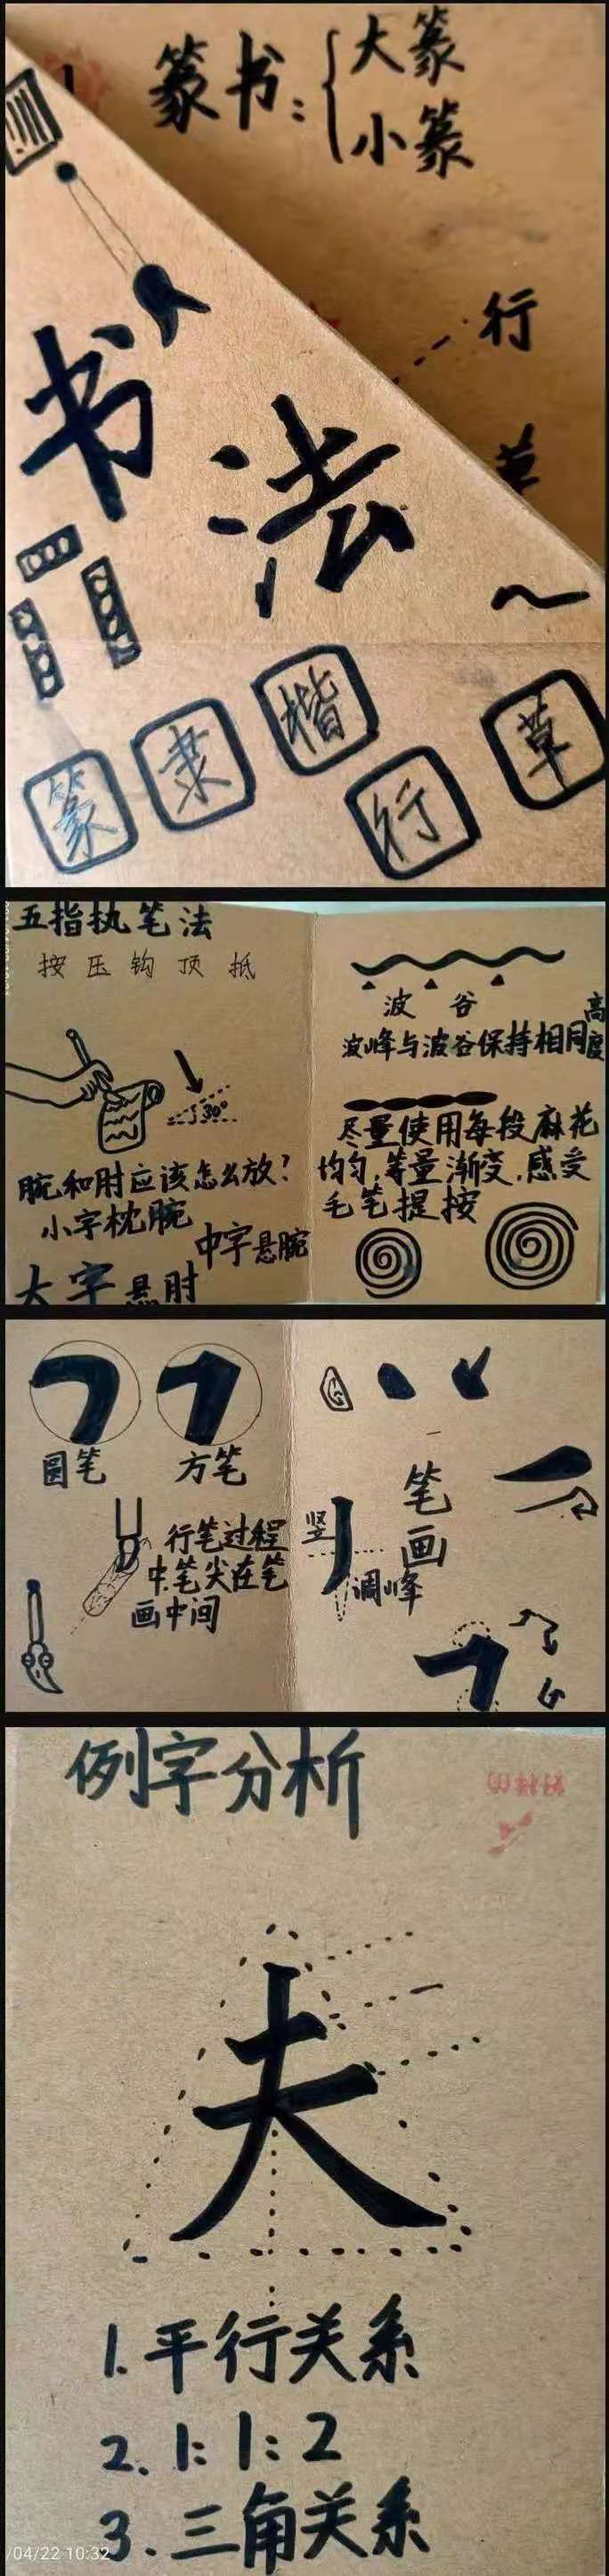 篆书：{大篆
小篆
行
草
书法
篆
隶
楷
行
草
五指执笔法
按压钩顶抵
30°
腕和肘应该怎么放？
小字枕腕
中字悬腕
大字悬肘
波谷
波峰与波谷保持相同高度
尽量使用每段麻花
均匀,等量渐变,感受
毛笔提按
圆笔
方笔
行笔过程
中.笔尖在笔
画中间
笔画
竖
调峰
例字分析
夫
1.平行关系
2.1:1:2
3.三角关系
/04/22 10:32